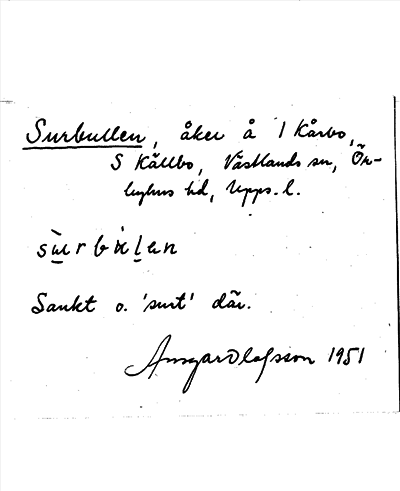 Surbullen, åker å 1 Kårbo,
S Källbo, Västlands sn, Ör-
byhus hd, Upps. l.
sùrbùlen
Sankt o. 'surt' där.
Ansgar Olofsson 1951